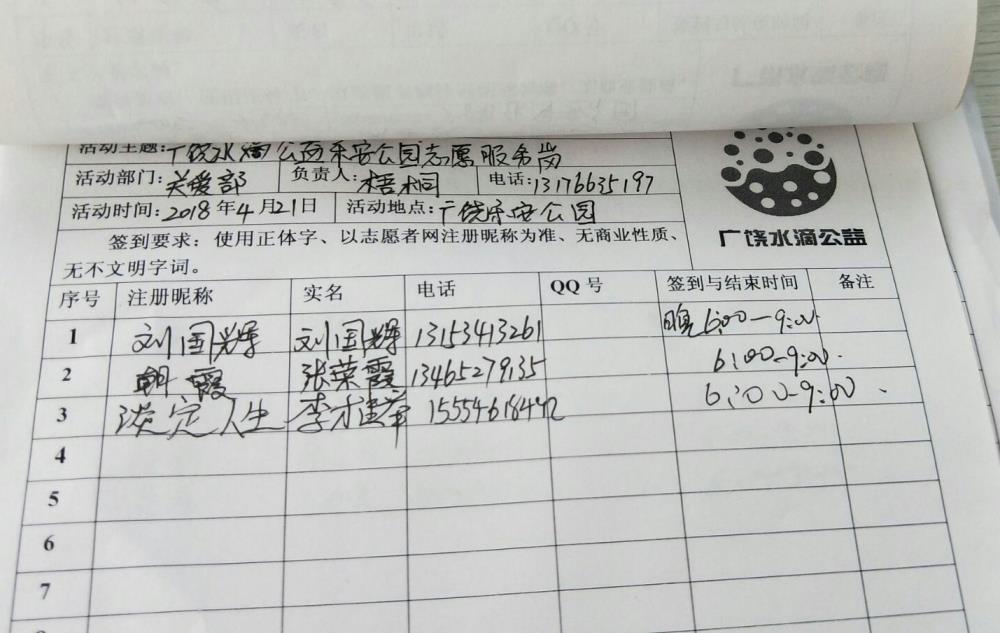 活动主题:广饶水滴公益乐安公园志愿服务岗
活动部门:关爱部 负责人:梧桐 电话:13176635197
活动时间:2018年4月21日 活动地点:广饶乐安公园
签到要求:使用正体字、以志愿者网注册昵称为准、无商业性质、
无不文明字词。
广饶水滴公益
序号 注册昵称 实名 电话 QQ号 签到与结束时间 备注
1 刘国辉 刘国辉 13153413261 晚6:00-9:00
2 朝霞 张荣霞 13465279135 6:00-9:00.
3 淡定人生 6:00-9:00.
4
5
6
7